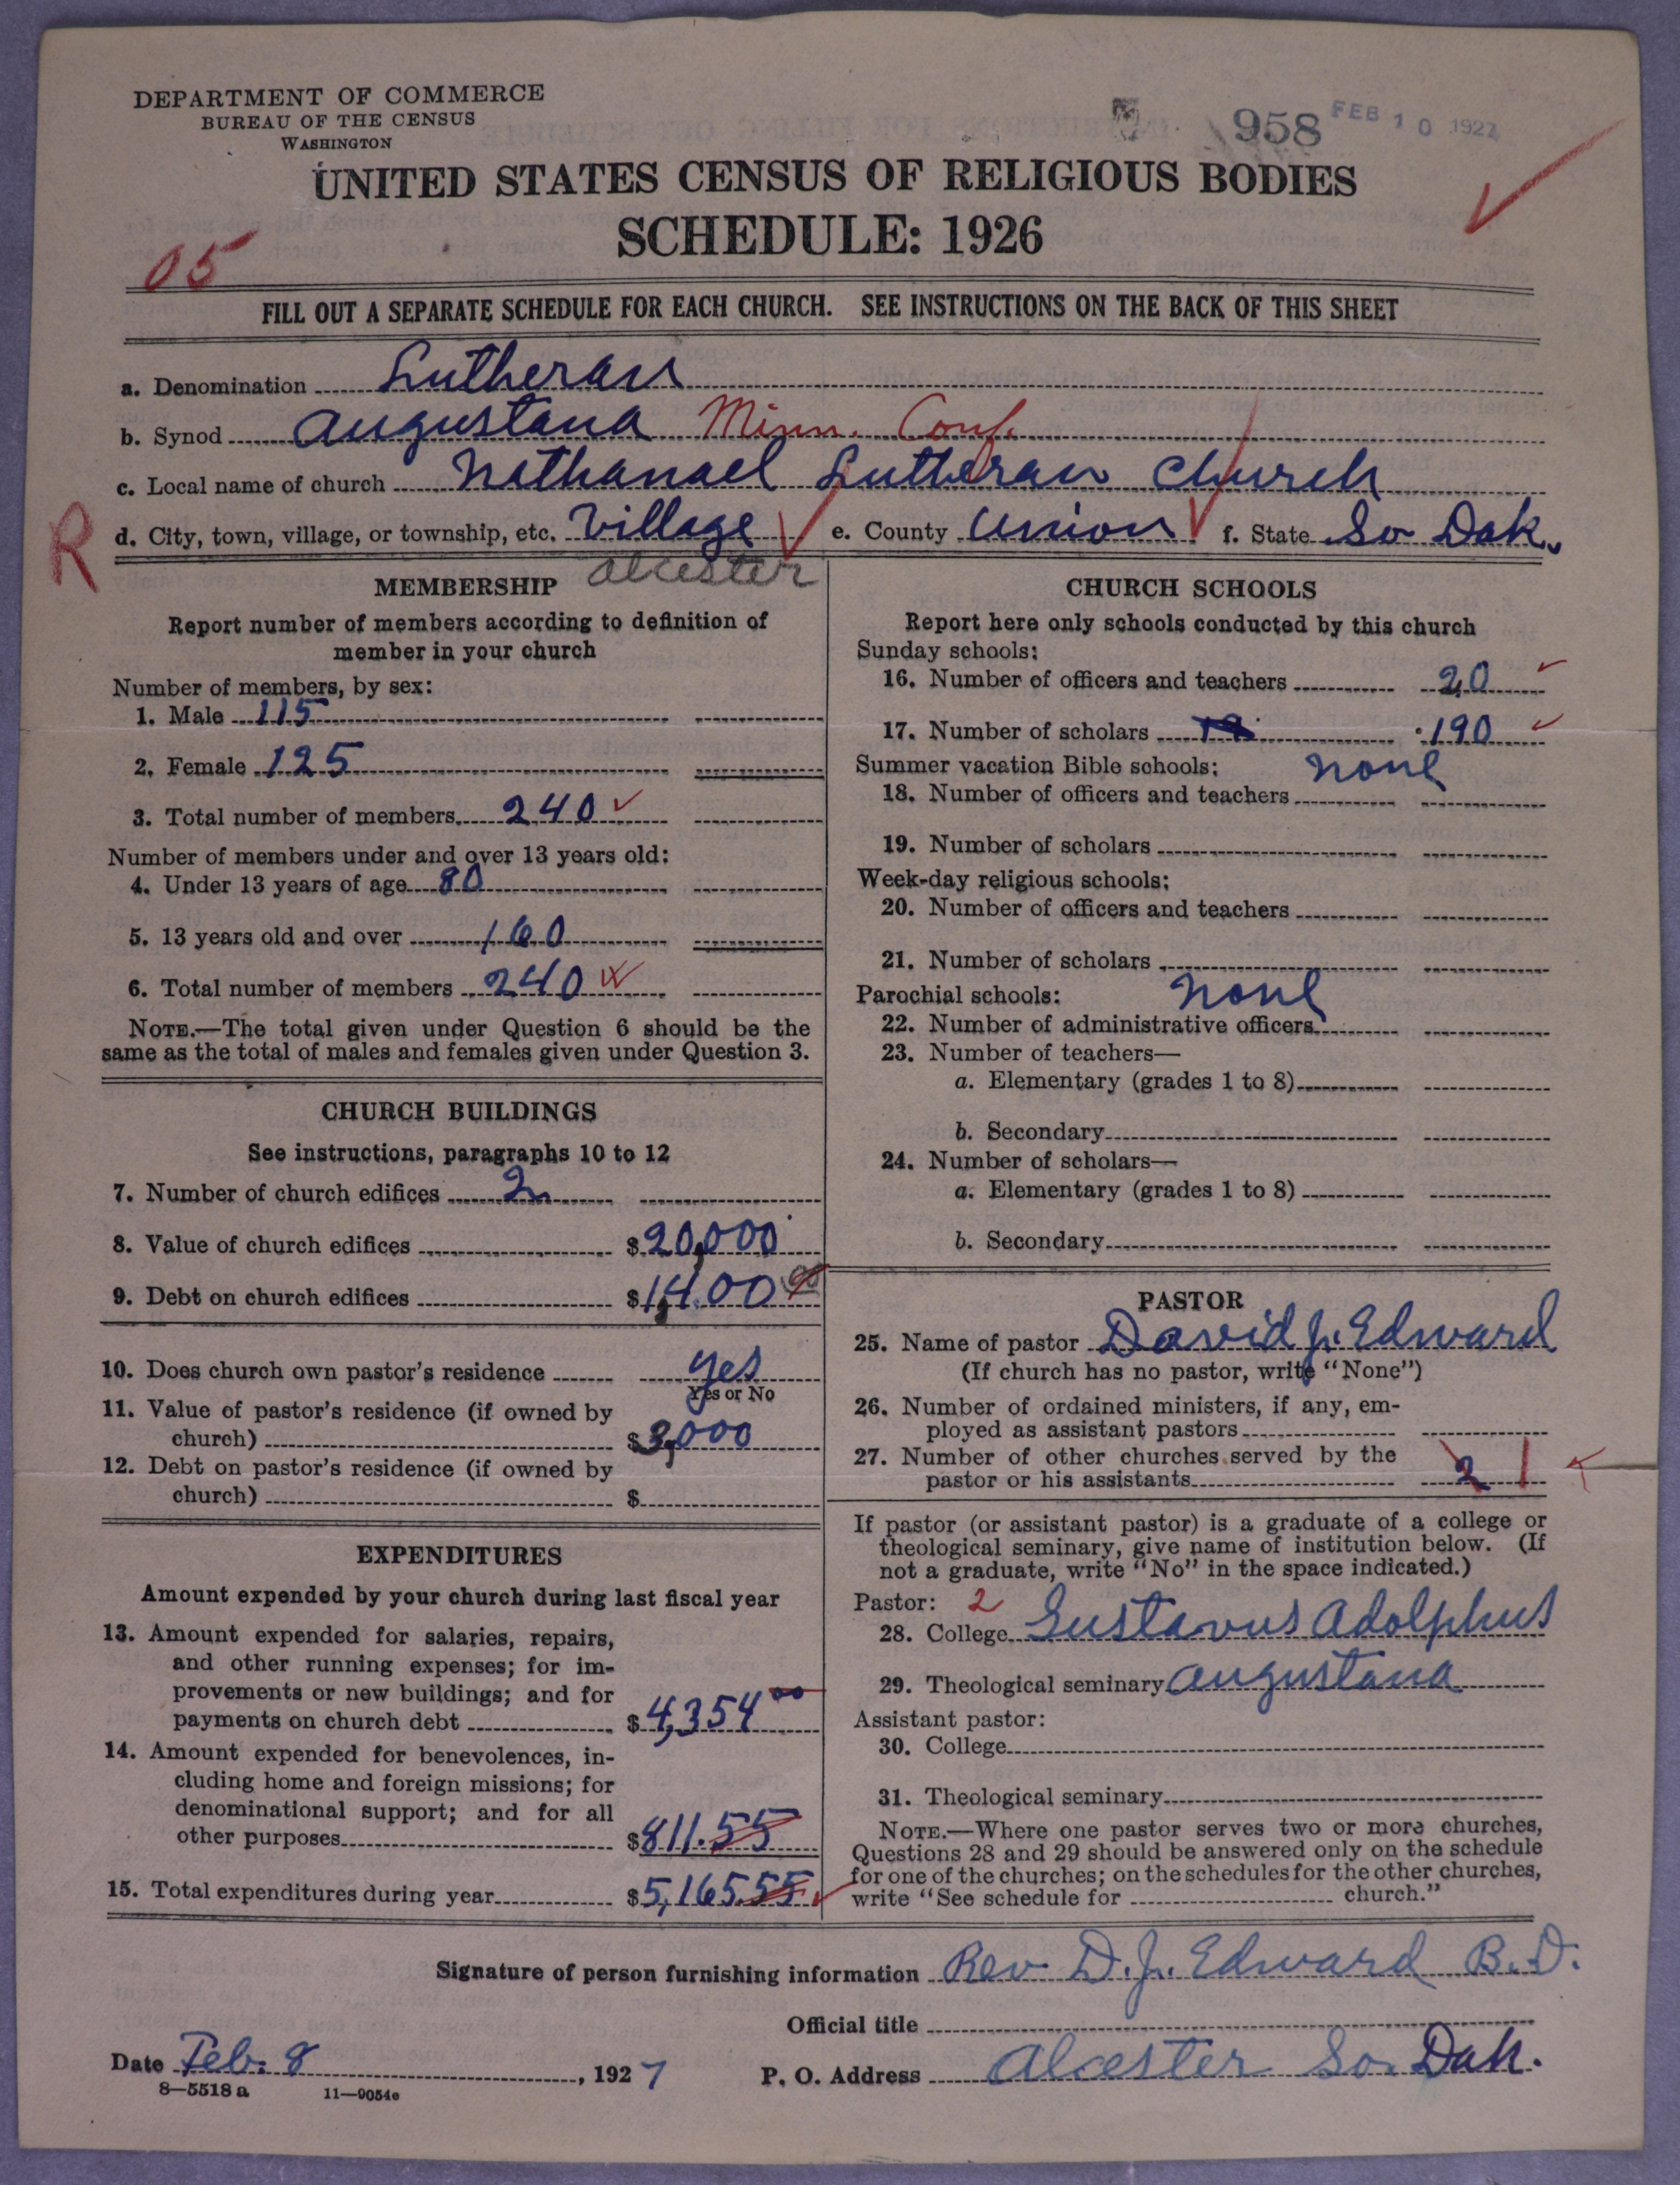 DEPARTMENT OF COMMERCE
BUREAU OF THE CENSUS
WASHINGTON
958 FEB 10 1927
UNITED STATES CENSUS OF RELIGIOUS BODIES
SCHEDULE: 1926
05
FILL OUT A SEPARATE SCHEDULE FOR EACH CHURCH. SEE INSTRUCTIONS ON THE BACK OF THIS SHEET
a. Denomination Lutheran
b. Synod Augustana Minn. Conf.
c. Local name of church Nathanael Lutheran Church
R d. City, town, village, or township, etc. Village e. County Union f. State So Dak.
Alcester
MEMBERSHIP
Report number of members according to definition of
member in your church
Number of members, by sex:
1. Male 115
2. Female 125
3. Total number of members 240
Number of members under and over 13 years old:
4. Under 13 years of age 80
5. 13 years old and over 160
6. Total number of members 240
NOTE.—The total given under Question 6 should be the
same as the total of males and females given under Question 3.
CHURCH BUILDINGS
See instructions, paragraphs 10 to 12
7. Number of church edifices 2
8. Value of church edifices $20,000
9. Debt on church edifices $1,400 00
10. Does church own pastor's residence yes
Yes or No
11. Value of pastor's residence (if owned by
church) $3,000
12. Debt on pastor's residence (if owned by
church) $
EXPENDITURES
Amount expended by your church during last fiscal year
13. Amount expended for salaries, repairs,
and other running expenses; for im-
provements or new buildings; and for
payments on church debt $4,354 00
14. Amount expended for benevolences, in-
cluding home and foreign missions; for
denominational support; and for all
other purposes $811.55
15. Total expenditures during year $5,165.55
CHURCH SCHOOLS
Report here only schools conducted by this church
Sunday schools:
16. Number of officers and teachers 20
17. Number of scholars 190
Summer vacation Bible schools: none
18. Number of officers and teachers
19. Number of scholars
Week-day religious schools:
20. Number of officers and teachers
21. Number of scholars
Parochial schools: none
22. Number of administrative officers
23. Number of teachers—
a. Elementary (grades 1 to 8)
b. Secondary
24. Number of scholars—
a. Elementary (grades 1 to 8)
b. Secondary
PASTOR
25. Name of pastor David J. Edward
(If church has no pastor, write "None")
26. Number of ordained ministers, if any, em-
ployed as assistant pastors
27. Number of other churches served by the
pastor or his assistants 2 1
If pastor (or assistant pastor) is a graduate of a college or
theological seminary, give name of institution below. (If
not a graduate, write "No" in the space indicated.)
Pastor: 2
28. College Gustavus Adolphus
29. Theological seminary Augustana
Assistant pastor:
30. College
31. Theological seminary
NOTE.—Where one pastor serves two or more churches,
Questions 28 and 29 should be answered only on the schedule
for one of the churches; on the schedules for the other churches,
write "See schedule for church."
Signature of person furnishing information Rev D.J. Edward B.D.
Official title
Date Feb. 8, 1927 P. O. Address Alcester So. Dak.
8—5518 a 11—9054c